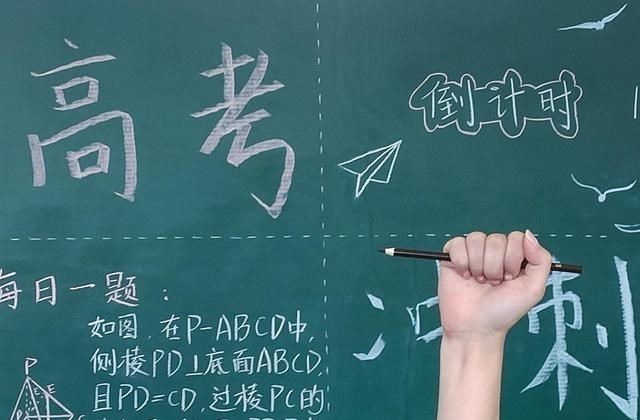 高考
倒计时
冲刺
每日一题：
如图,在P-ABCD中,
侧棱PD⊥底面ABCD,
且PD=CD,过棱PC的
P
E